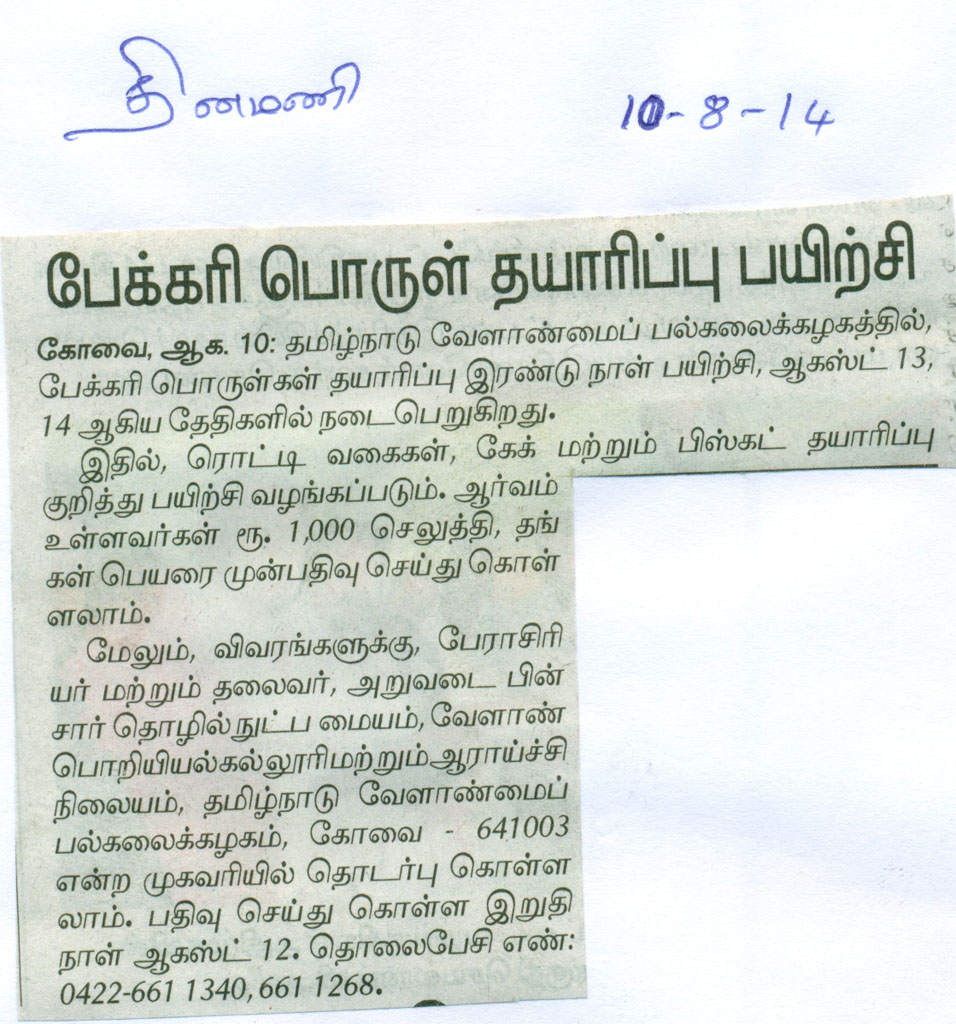 தினமணி 10-8-14
பேக்கரி பொருள் தயாரிப்பு பயிற்சி
கோவை, ஆக. 10: தமிழ்நாடு வேளாண்மைப் பல்கலைக்கழகத்தில்,
பேக்கரி பொருள்கள் தயாரிப்பு இரண்டு நாள் பயிற்சி, ஆகஸ்ட் 13,
14 ஆகிய தேதிகளில் நடைபெறுகிறது.
இதில், ரொட்டி வகைகள், கேக் மற்றும் பிஸ்கட் தயாரிப்பு
குறித்து பயிற்சி வழங்கப்படும். ஆர்வம்
உள்ளவர்கள் ரூ. 1,000 செலுத்தி, தங்
கள் பெயரை முன்பதிவு செய்து கொள்
ளலாம்.
மேலும், விவரங்களுக்கு, பேராசிரி
யர் மற்றும் தலைவர், அறுவடை பின்
சார் தொழில்நுட்ப மையம், வேளாண்
பொறியியல்கல்லூரிமற்றும்ஆராய்ச்சி
நிலையம், தமிழ்நாடு வேளாண்மைப்
பல்கலைக்கழகம், கோவை - 641003
என்ற முகவரியில் தொடர்பு கொள்ள
லாம். பதிவு செய்து கொள்ள இறுதி
நாள் ஆகஸ்ட் 12. தொலைபேசி எண்:
0422-661 1340, 661 1268.